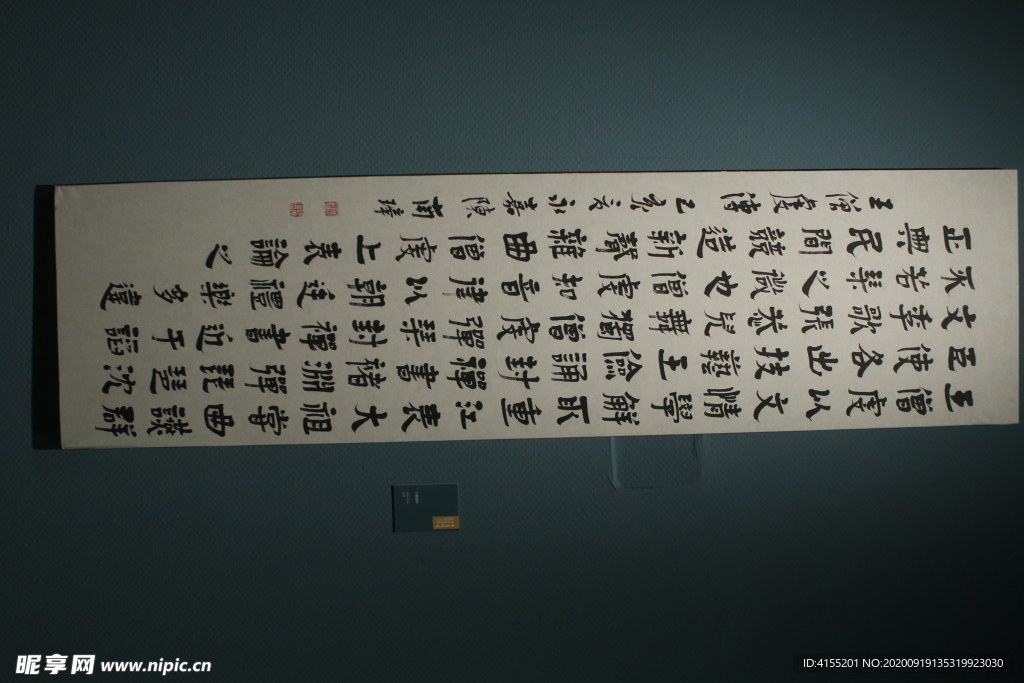 王僧虔以文情學解取重江表大祖嘗曲讌群
臣使各出技藝王儉誦封禪書褚淵彈琵琶沈
文季歌張恭兒舞獨僧虔彈琴封禪書近于諂
不若琴之微也僧虔知音律以朝廷禮樂多違
正典民間競造新聲雜曲僧虔上表論之
王僧虔傳 乙亥夏永嘉陳南璋
ID:4155201 NO:20200919135319923030
昵享网 www.nipic.cn